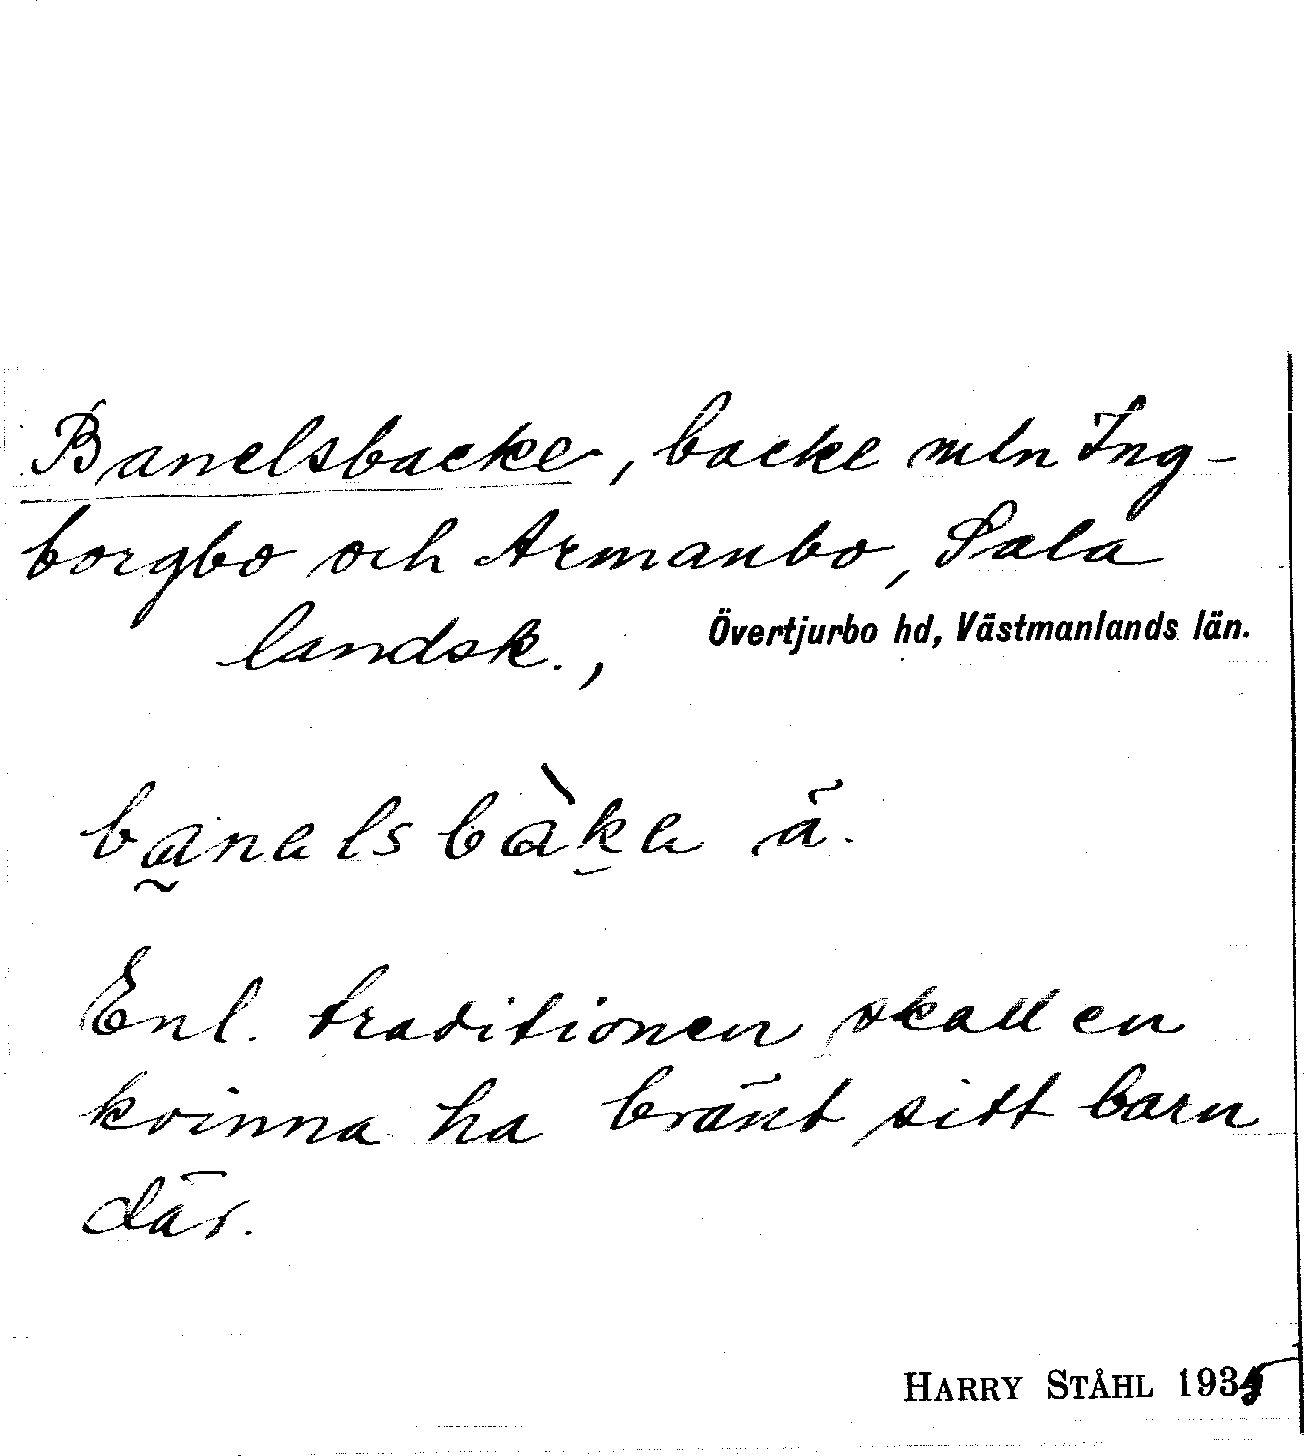 Banelsbacke, backe mln Ing-
borgbo och Armanbo, Sala
landsk., Övertjurbo hd, Västmanlands län.
banalsbàka ä.
Enl. traditionen skall en
kvinna ha bränt sitt barn
där.
HARRY STÅHL 1935